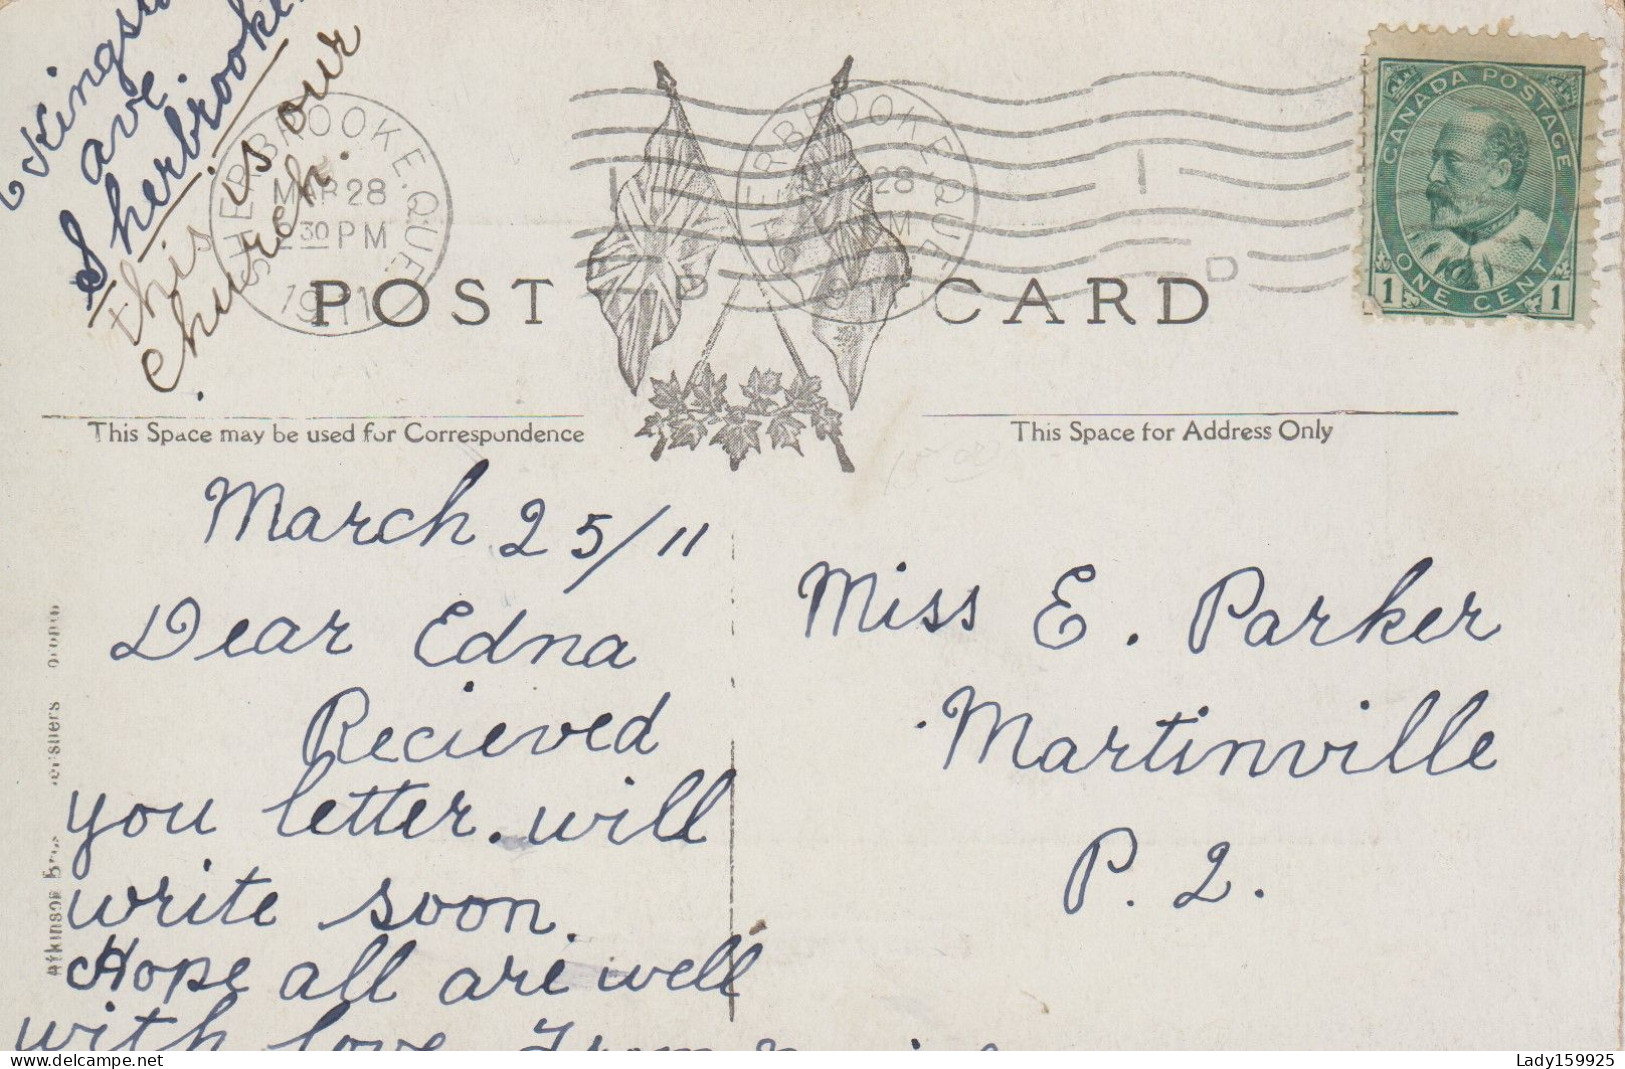 Kingston
ave
Sherbrooke
this is our
church.
SHERBROOKE. QUE
MAR 28
2 30 PM
1911
SHERBROOKE. QUE
28
PM
CANADA POSTAGE
ONE CENT
1 1
POST CARD
This Space may be used for Correspondence
This Space for Address Only
March 25/11
Dear Edna
Recieved
you letter. will
write soon.
Hope all are well
with love From
Miss E. Parker
Martinville
P. 2.
Atkinson Bros
Lady159925